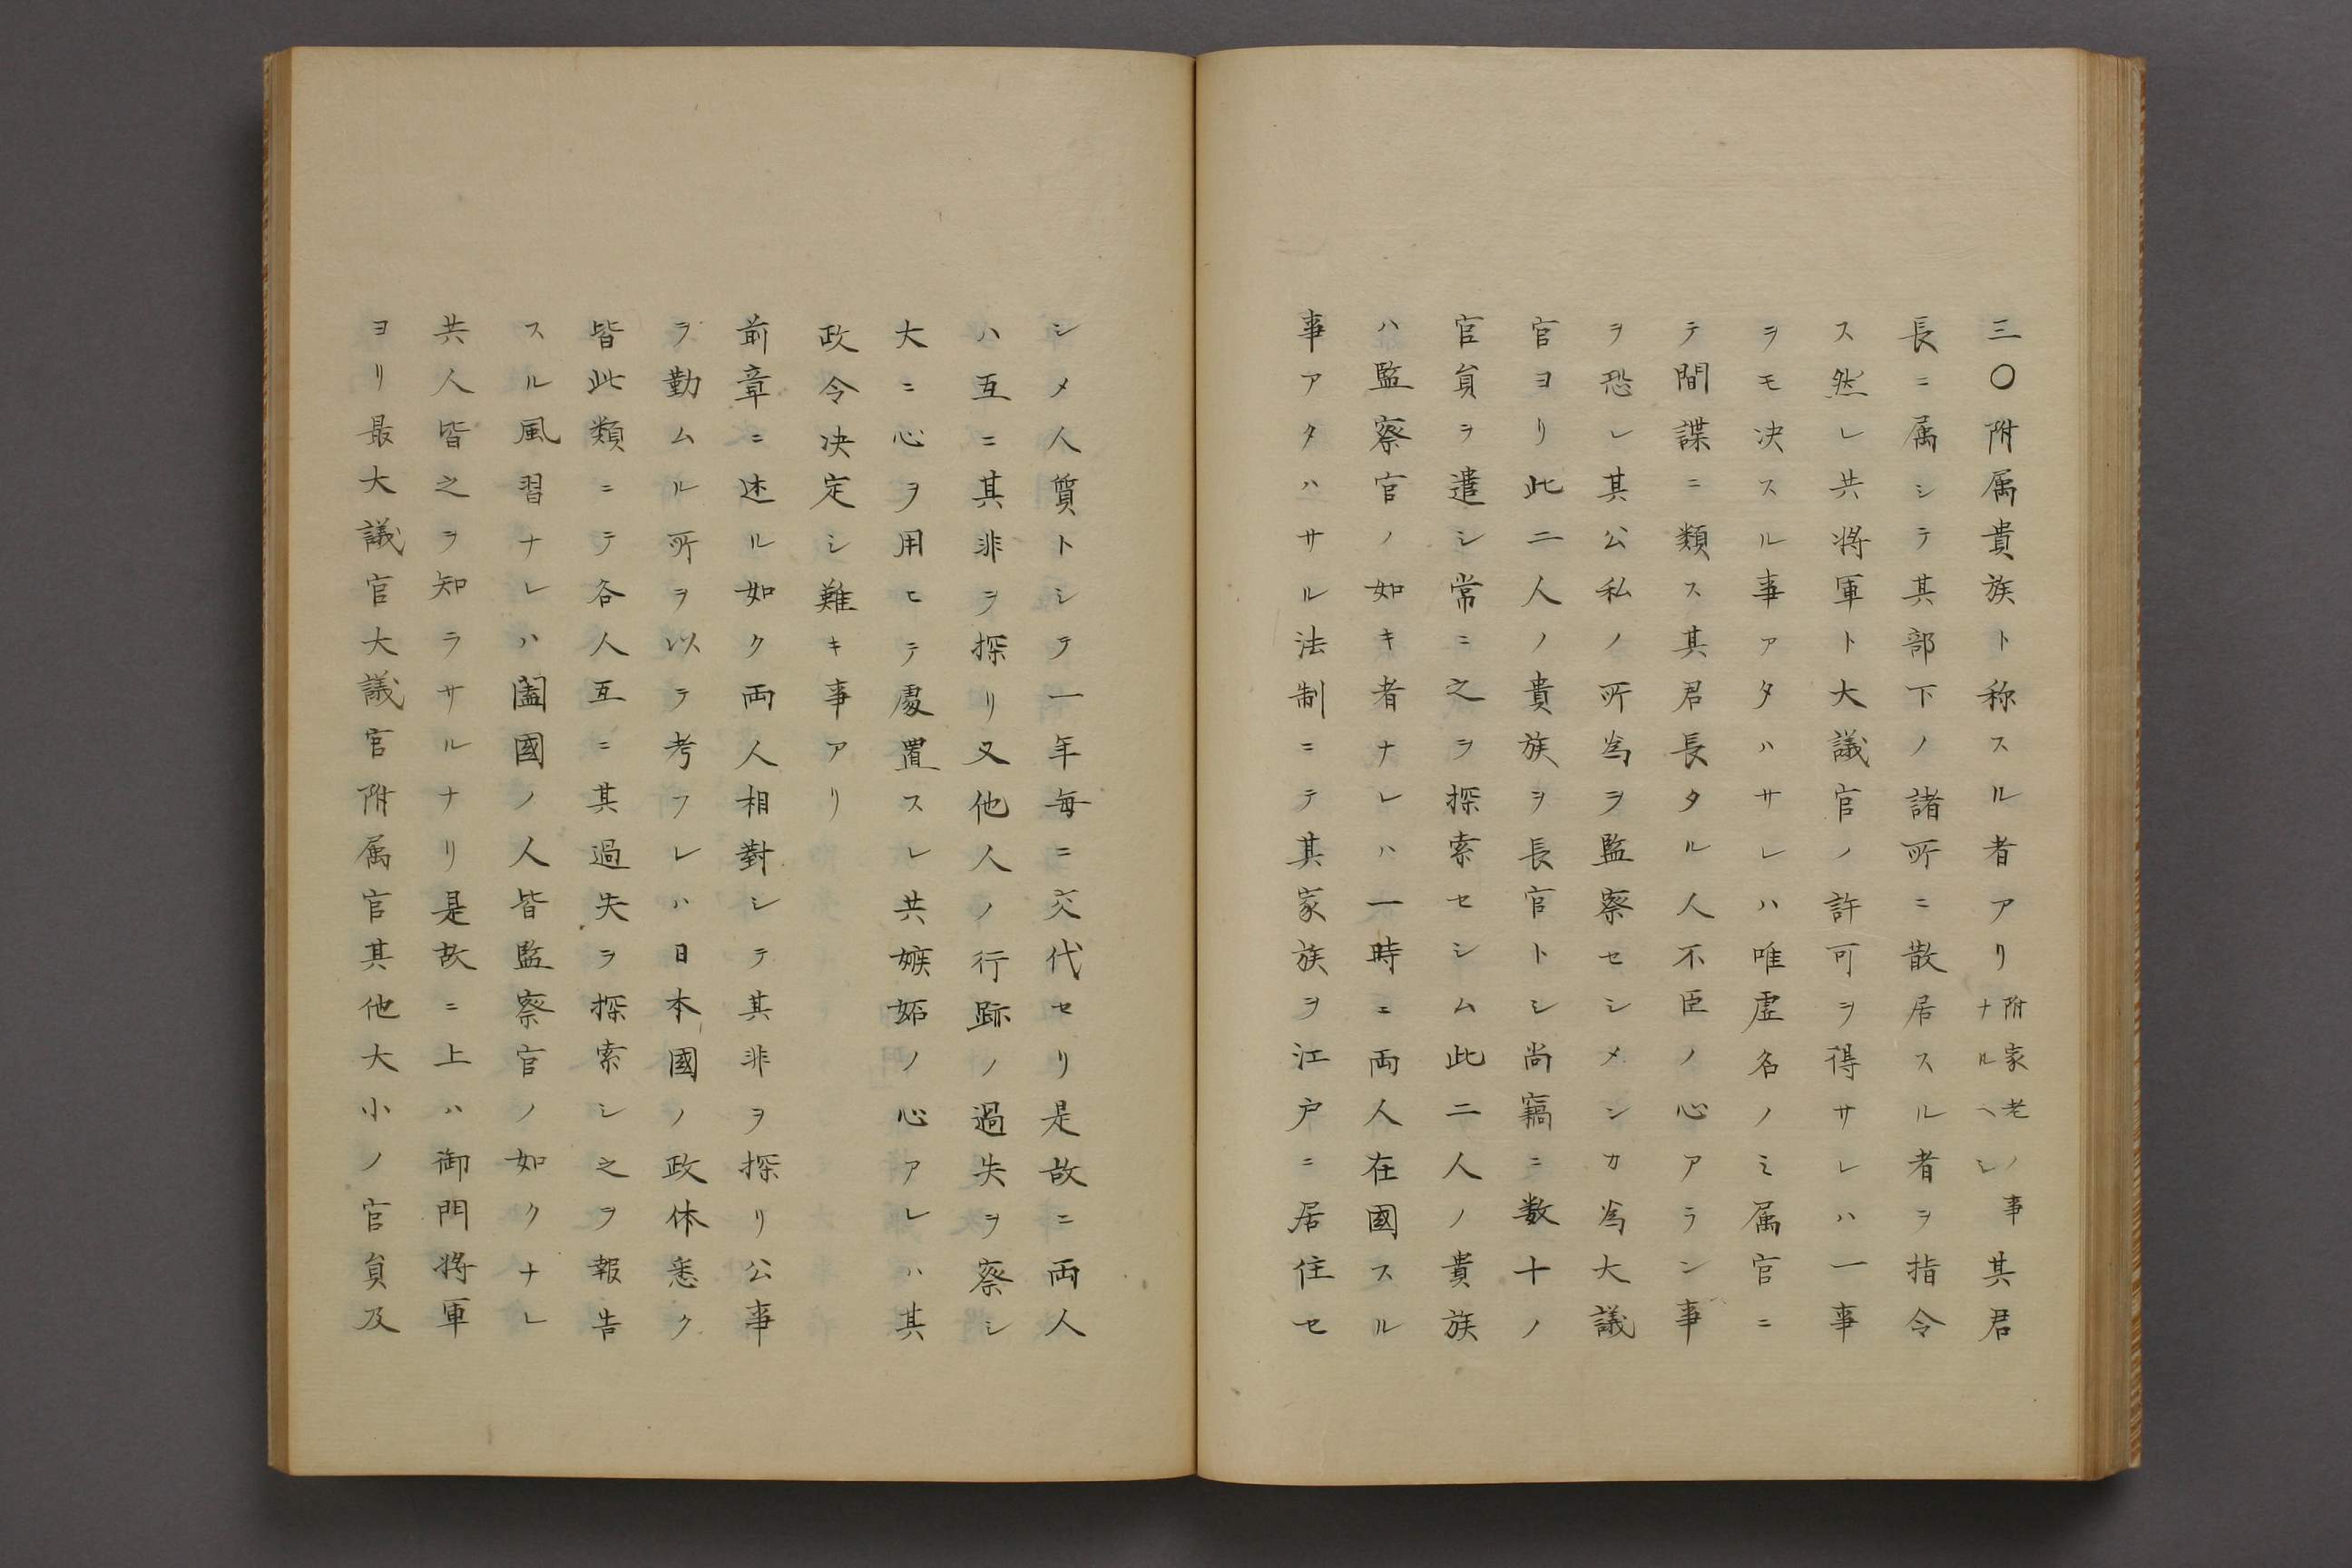 三〇附属貴族ト称スル者アリ附家老ノ事ナルヘシ其君
長ニ属シテ其部下ノ諸所ニ散居スル者ヲ指令
ス然レ共将軍ト大議官ノ許可ヲ得サレハ一事
ヲモ决スル事アタハサレハ唯虚名ノミ属官ニ
テ間諜ニ類ス其君長タル人不臣ノ心アラン事
ヲ恐レ其公私ノ所為ヲ監察セシメンカ為大議
官ヨリ此二人ノ貴族ヲ長官トシ尚竊ニ数十ノ
官貟ヲ遣シ常ニ之ヲ探索セシム此二人ノ貴族
ハ監察官ノ如キ者ナレハ一時ニ両人在國スル
事アタハサル法制ニテ其家族ヲ江戸ニ居住セ
シメ人質トシテ一年毎ニ交代セリ是故ニ両人
ハ互ニ其非ヲ探リ又他人ノ行跡ノ過失ヲ察シ
大ニ心ヲ用ヒテ處置スレ共嫉妬ノ心アレハ其
政令决定シ難キ事アリ
前章ニ述ル如ク両人相對シテ其非ヲ探リ公事
ヲ勤ムル所ヲ以テ考フレハ日本國ノ政体悉ク
皆此類ニテ各人互ニ其過失ヲ探索シ之ヲ報告
スル風習ナレハ闔國ノ人皆監察官ノ如クナレ
共人皆之ヲ知ラサルナリ是故ニ上ハ御門将軍
ヨリ最大議官大議官附属官其他大小ノ官貟及